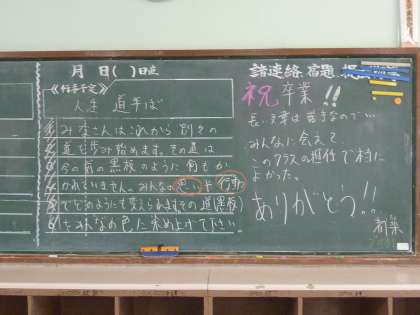 月 日( )日直
《行事予定》
人生 道半ば
1 みなさんはこれから別々の
2 道を歩み始めます。その道は
3 今の前の黒板のように何もか
4 かれていません。みんなの思いや行動
5 でどのようにも変えられます。その道(黒板)
6 をみんなの色に染め上げて下さい。
諸連絡 宿題
祝 卒業!!
長い文章は苦手なので…
みんなに会えて、
このクラスの担任で本当に
よかった。
ありがとう!!